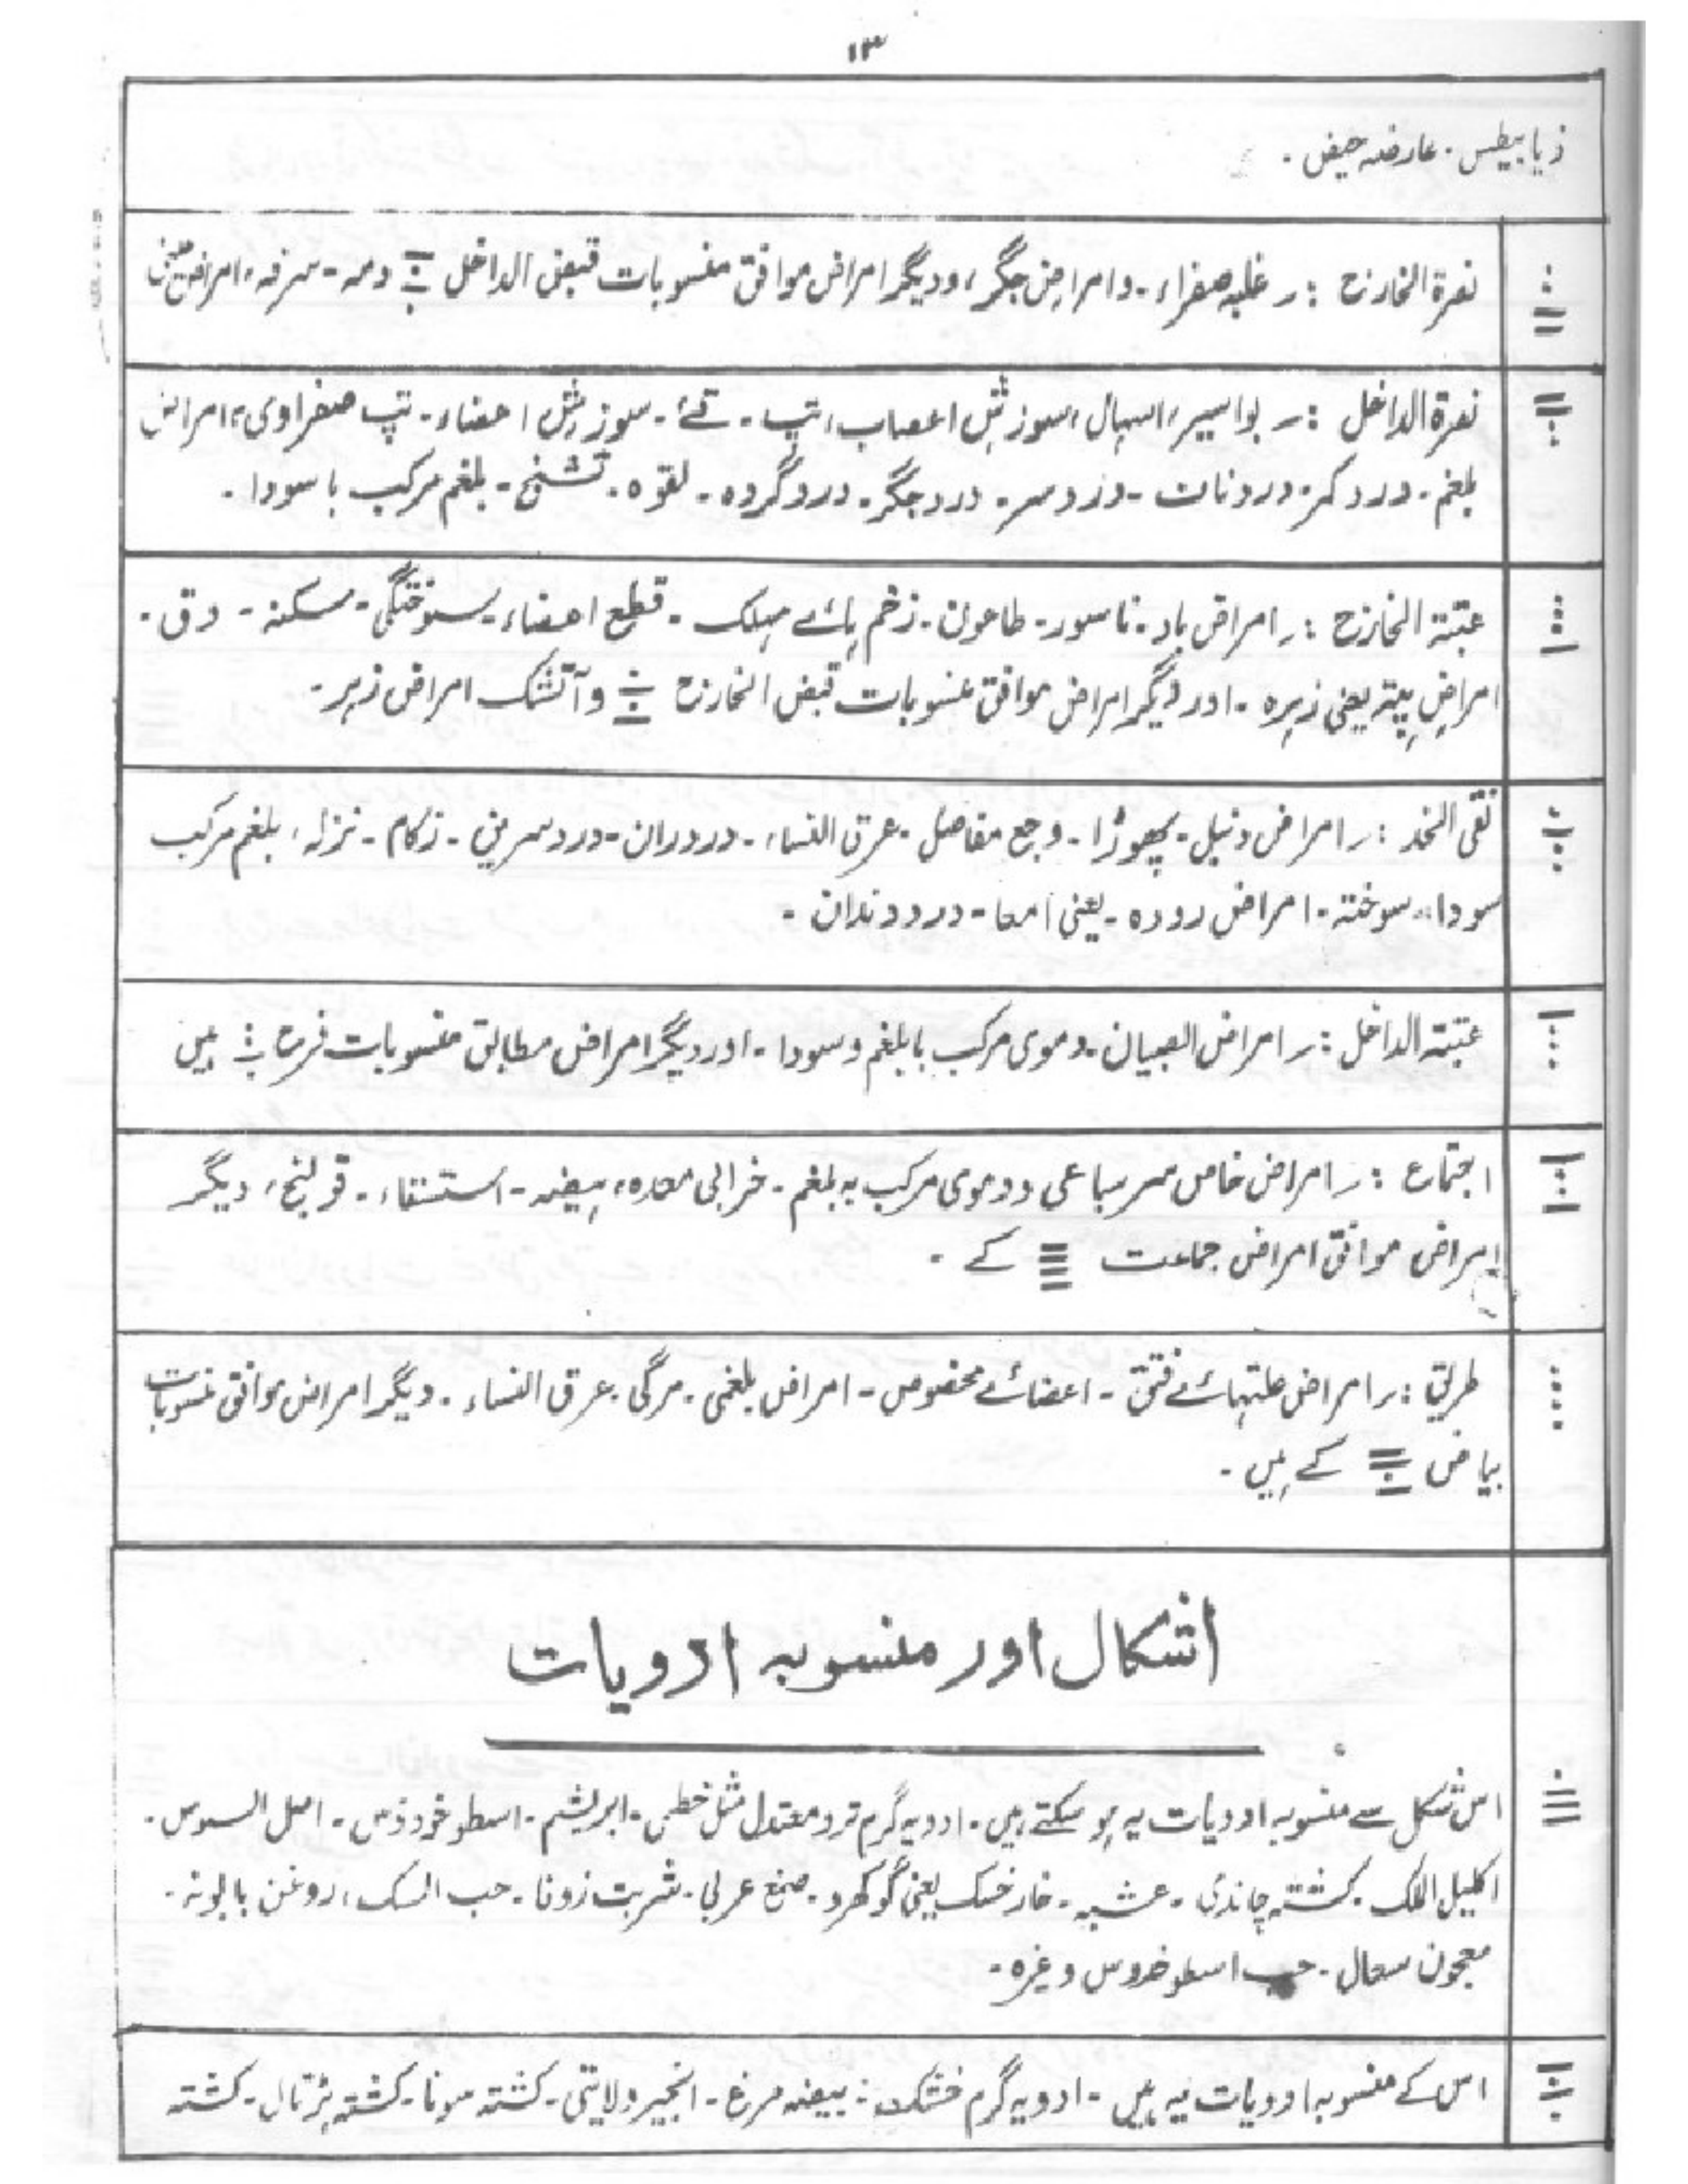 ۱۳
ذیابیطس۔ عارضہ حیض۔
نصرۃ الخارج :۔ غلبہ صفراء۔ و امراض جگر، و دیگر امراض موافق منسوبات قبض الداخل دمہ۔ سرفہ، امراض
نصرۃ الداخل :۔ بواسیر، اسہال، سوزش اعصاب، تپ۔ قے۔ سوزش اعضاء۔ تپ صفراوی، امراض
بلغم۔ درد کمر۔ درد ناف۔ درد سر۔ درد جگر۔ درد گردہ۔ لقوہ۔ تشنج۔ بلغم مرکب با سودا۔
عتبۃ الخارج :۔ امراض باد۔ ناسور۔ طاعون۔ زخم ہائے مہلک۔ قطع اعضاء۔ سوختگی۔ سکتہ۔ دق۔
امراض پتہ یعنی زہرہ۔ اور دیگر امراض موافق منسوبات قبض الخارج و آتشک امراض زہر۔
نقی الخد :۔ امراض دنبل۔ پھوڑا۔ وجع مفاصل۔ عرق النساء۔ درد ران۔ درد سرین۔ زکام۔ نزلہ، بلغم مرکب
سوداء۔ سوختہ۔ امراض رودہ۔ یعنی امعا۔ درد دندان۔
عتبۃ الداخل :۔ امراض الصبیان۔ دموی مرکب با بلغم و سودا۔ اور دیگر امراض مطابق منسوبات فرح ہیں
اجتماع :۔ امراض خاص سرسباعی و دموی مرکب بہ بلغم۔ خرابی معدہ، ہیضہ۔ استسقاء۔ قولنج، دیگر
امراض موافق امراض جماعت کے۔
طریق :۔ امراض علتہائے فتق۔ اعضائے مخصوص۔ امراض بلغمی۔ مرگی۔ عرق النساء۔ دیگر امراض موافق منسوبات
بیاض کے ہیں۔
اشکال اور منسوبہ ادویات
اس شکل سے منسوبہ ادویات یہ ہو سکتے ہیں۔ ادویہ گرم تر و معتدل مثل خطمی۔ ابریشم۔ اسطوخودوس۔ اصل السوس۔
اکلیل الملک۔ کشتہ چاندی۔ عشبہ۔ خار خسک یعنی گوکھرو۔ صمغ عربی۔ شربت زوفا۔ حب المسک، روغن بابونہ۔
معجون سعال۔ حب اسطوخدوس وغیرہ۔
اس کے منسوبہ ادویات یہ ہیں۔ ادویہ گرم خشک :۔ بیضہ مرغ۔ انجیر ولایتی۔ کشتہ سونا۔ کشتہ ہڑتال۔ کشتہ